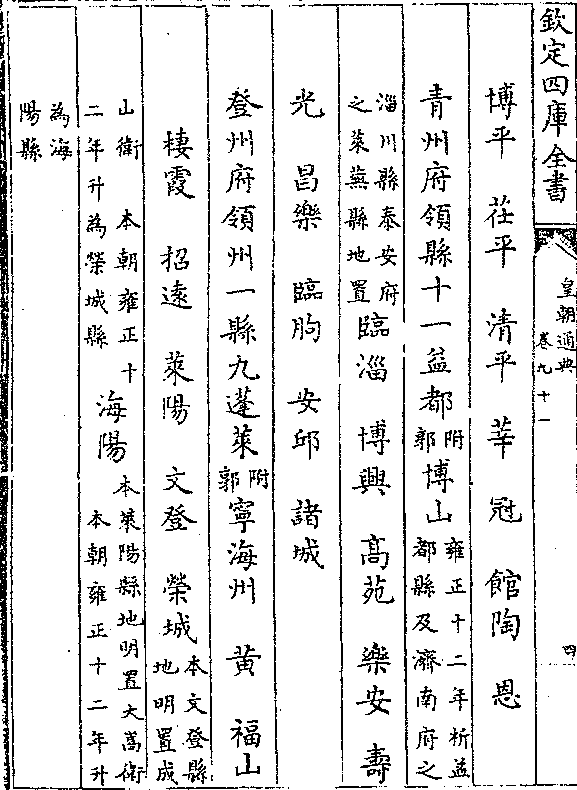 欽定四庫全書
皇朝通典
卷九十一
四
博平 茌平 清平 莘 冠 館陶 恩
青州府領縣十一益都附郭博山雍正十二年析益都縣及濟南府之
淄川縣泰安府之萊蕪縣地置臨淄 博興 髙苑 樂安 壽
光 昌樂 臨朐 安邱 諸城
登州府領州一縣九蓬萊附郭寧海州 黃 福山
棲霞 招遠 萊陽 文登 榮城本文登縣地明置成
山衛 本朝雍正十二年升為榮城縣海陽本萊陽縣地明置大嵩衛 本朝雍正十二年升
為海陽縣